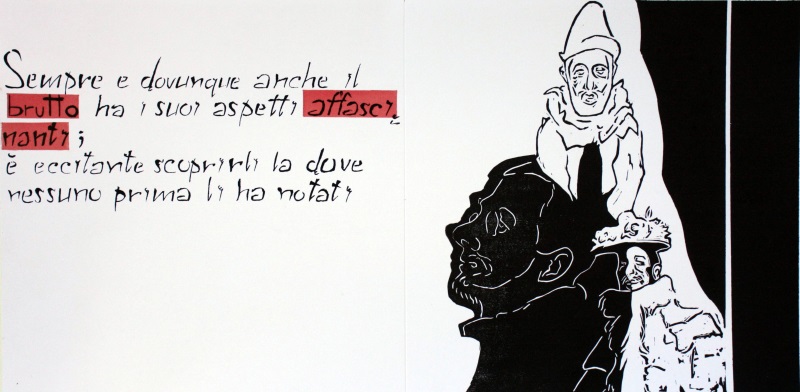 Sempre e dovunque anche il
brutto ha i suoi aspetti affasci-
nanti;
è eccitante scoprirli la dove
nessuno prima li ha notati